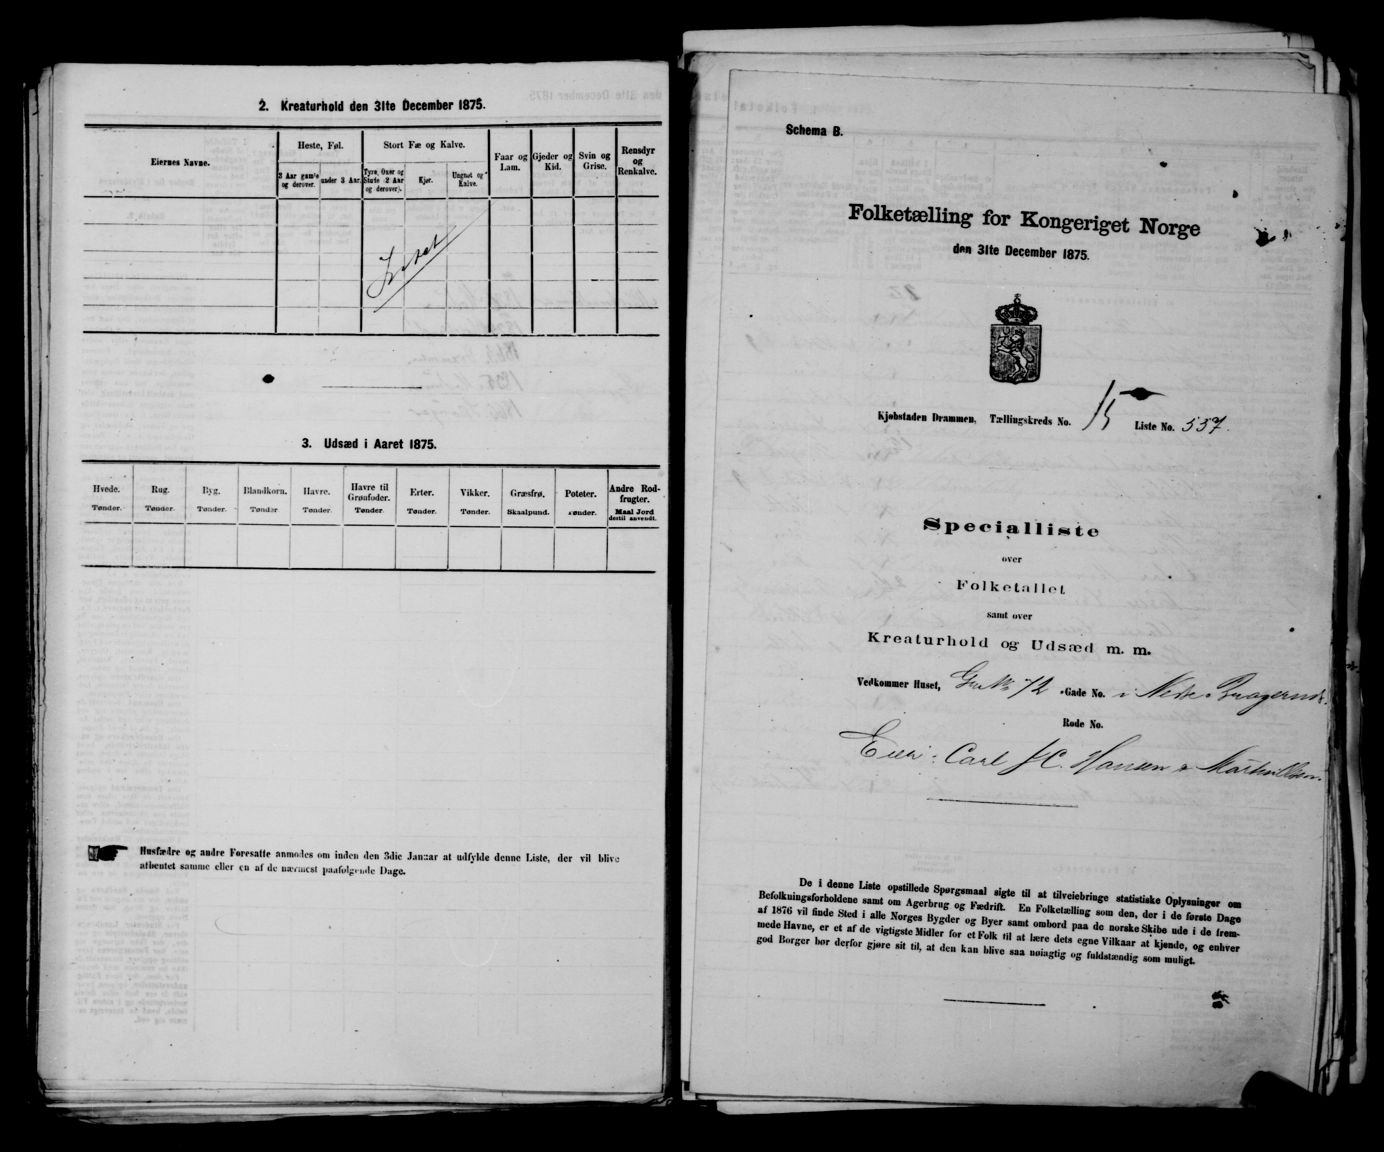 2. Kreaturhold den 31te December 1875.
Eiernes Navne.
Heste, Føl.
Stort Fæ og Kalve.
Faar og Lam.
Gjeder og Kid.
Svin og Grise.
Rensdyr og Renkalve.
3 Aar gamle og derover.
under 3 Aar.
Tyre, Oxer og Stude (2 Aar og derover).
Kjør.
Ungnøt og Kalve.
Intet
3. Udsæd i Aaret 1875.
Hvede. Rug. Byg. Blandkorn. Havre. Havre til Grønfoder. Erter. Vikker. Græsfrø. Poteter. Andre Rodfrugter.
Tønder. Tønder. Tønder. Tønder. Tønder. Tønder. Tønder. Tønder. Skaalpund. Tønder. Maal Jord dertil anvendt.
Husfædre og andre Foresatte anmodes om inden den 3die Januar at udfylde denne Liste, der vil blive
afhentet samme eller en af de nærmest paafølgende Dage.
Schema B.
Folketælling for Kongeriget Norge
den 31te December 1875.
Kjøbstaden Drammen. Tællingskreds No. 15 Liste No. 557.
Specialliste
over
Folketallet
samt over
Kreaturhold og Udsæd m. m.
Vedkommer Huset, 72 Gade No. i Nedre Bragernes
Rode No.
Eier: Carl Hansen
De i denne Liste opstillede Spørgsmaal sigte til at tilveiebringe statistiske Oplysninger om
Befolkningsforholdene samt om Agerbrug og Fædrift. En Folketælling som den, der i de første Dage
af 1876 vil finde Sted i alle Norges Bygder og Byer samt ombord paa de norske Skibe ude i de frem-
mede Havne, er et af de vigtigste Midler for et Folk til at lære dets egne Vilkaar at kjende, og enhver
god Borger bør derfor gjøre sit til, at den kan blive saa nøiagtig og fuldstændig som muligt.